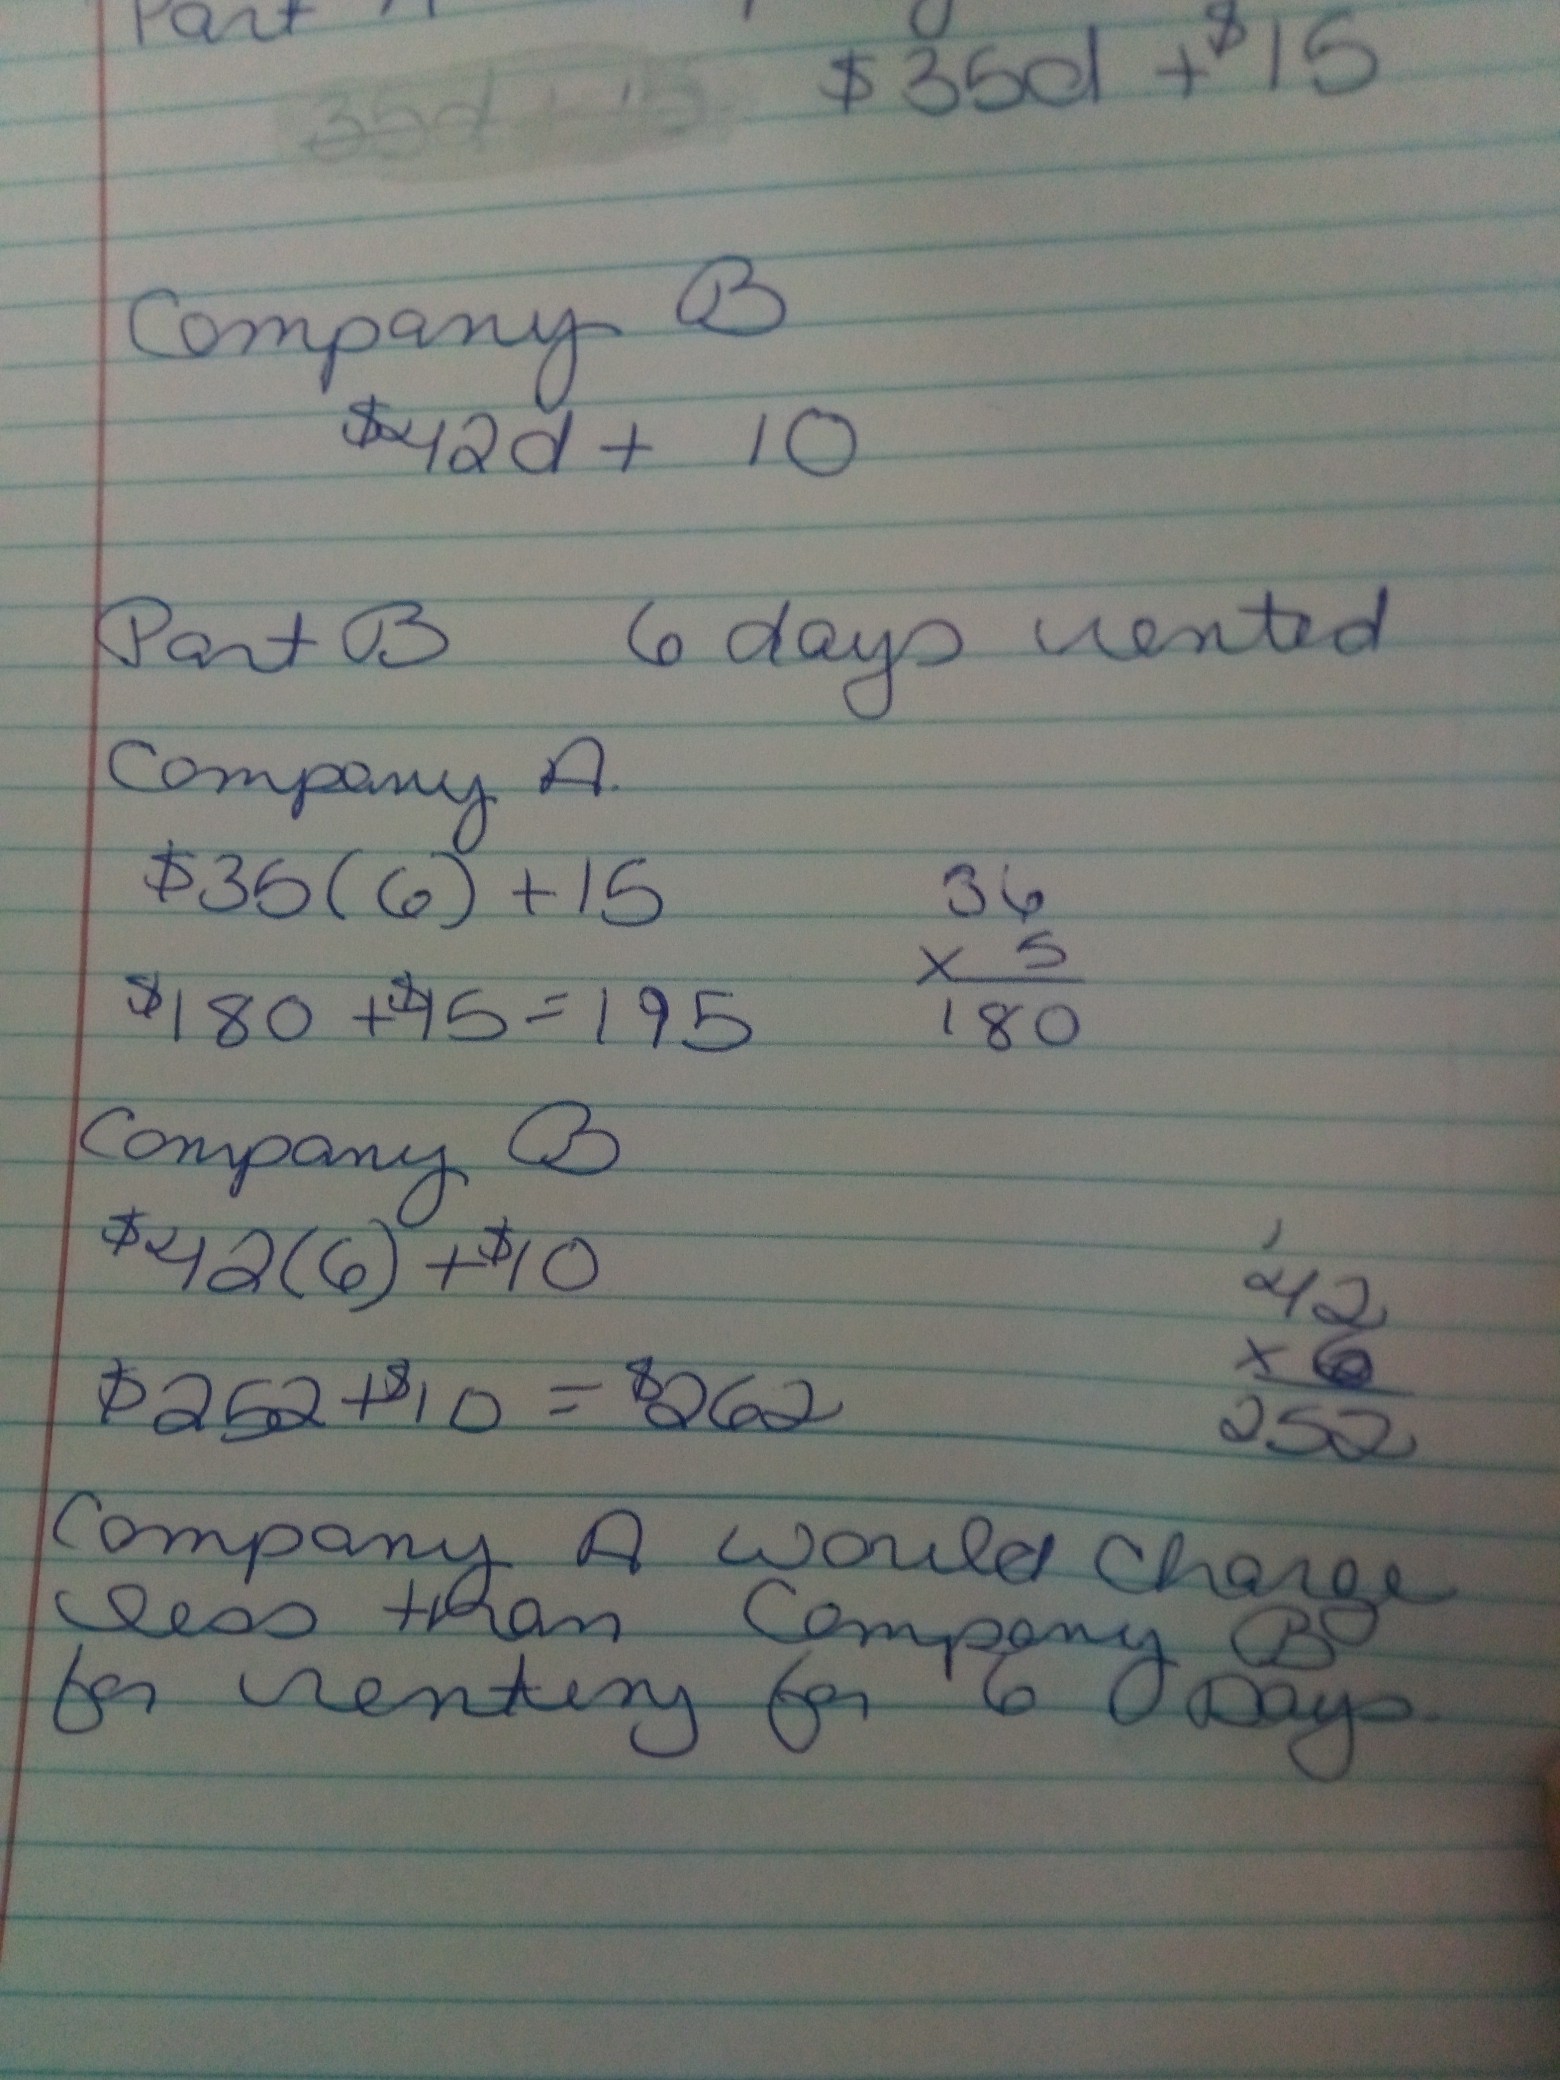 Part A
$35d + $15
35d + 15
Company B
$42d + 10
Part B 6 days rented
Company A.
$35(6) + 15
36
x 5
$180 + $15 = 195
180
Company B
$42(6) + $10
1
42
x 6
$252 + $10 = $262
252
Company A would charge
less than Company B
for renting for 6 Days.